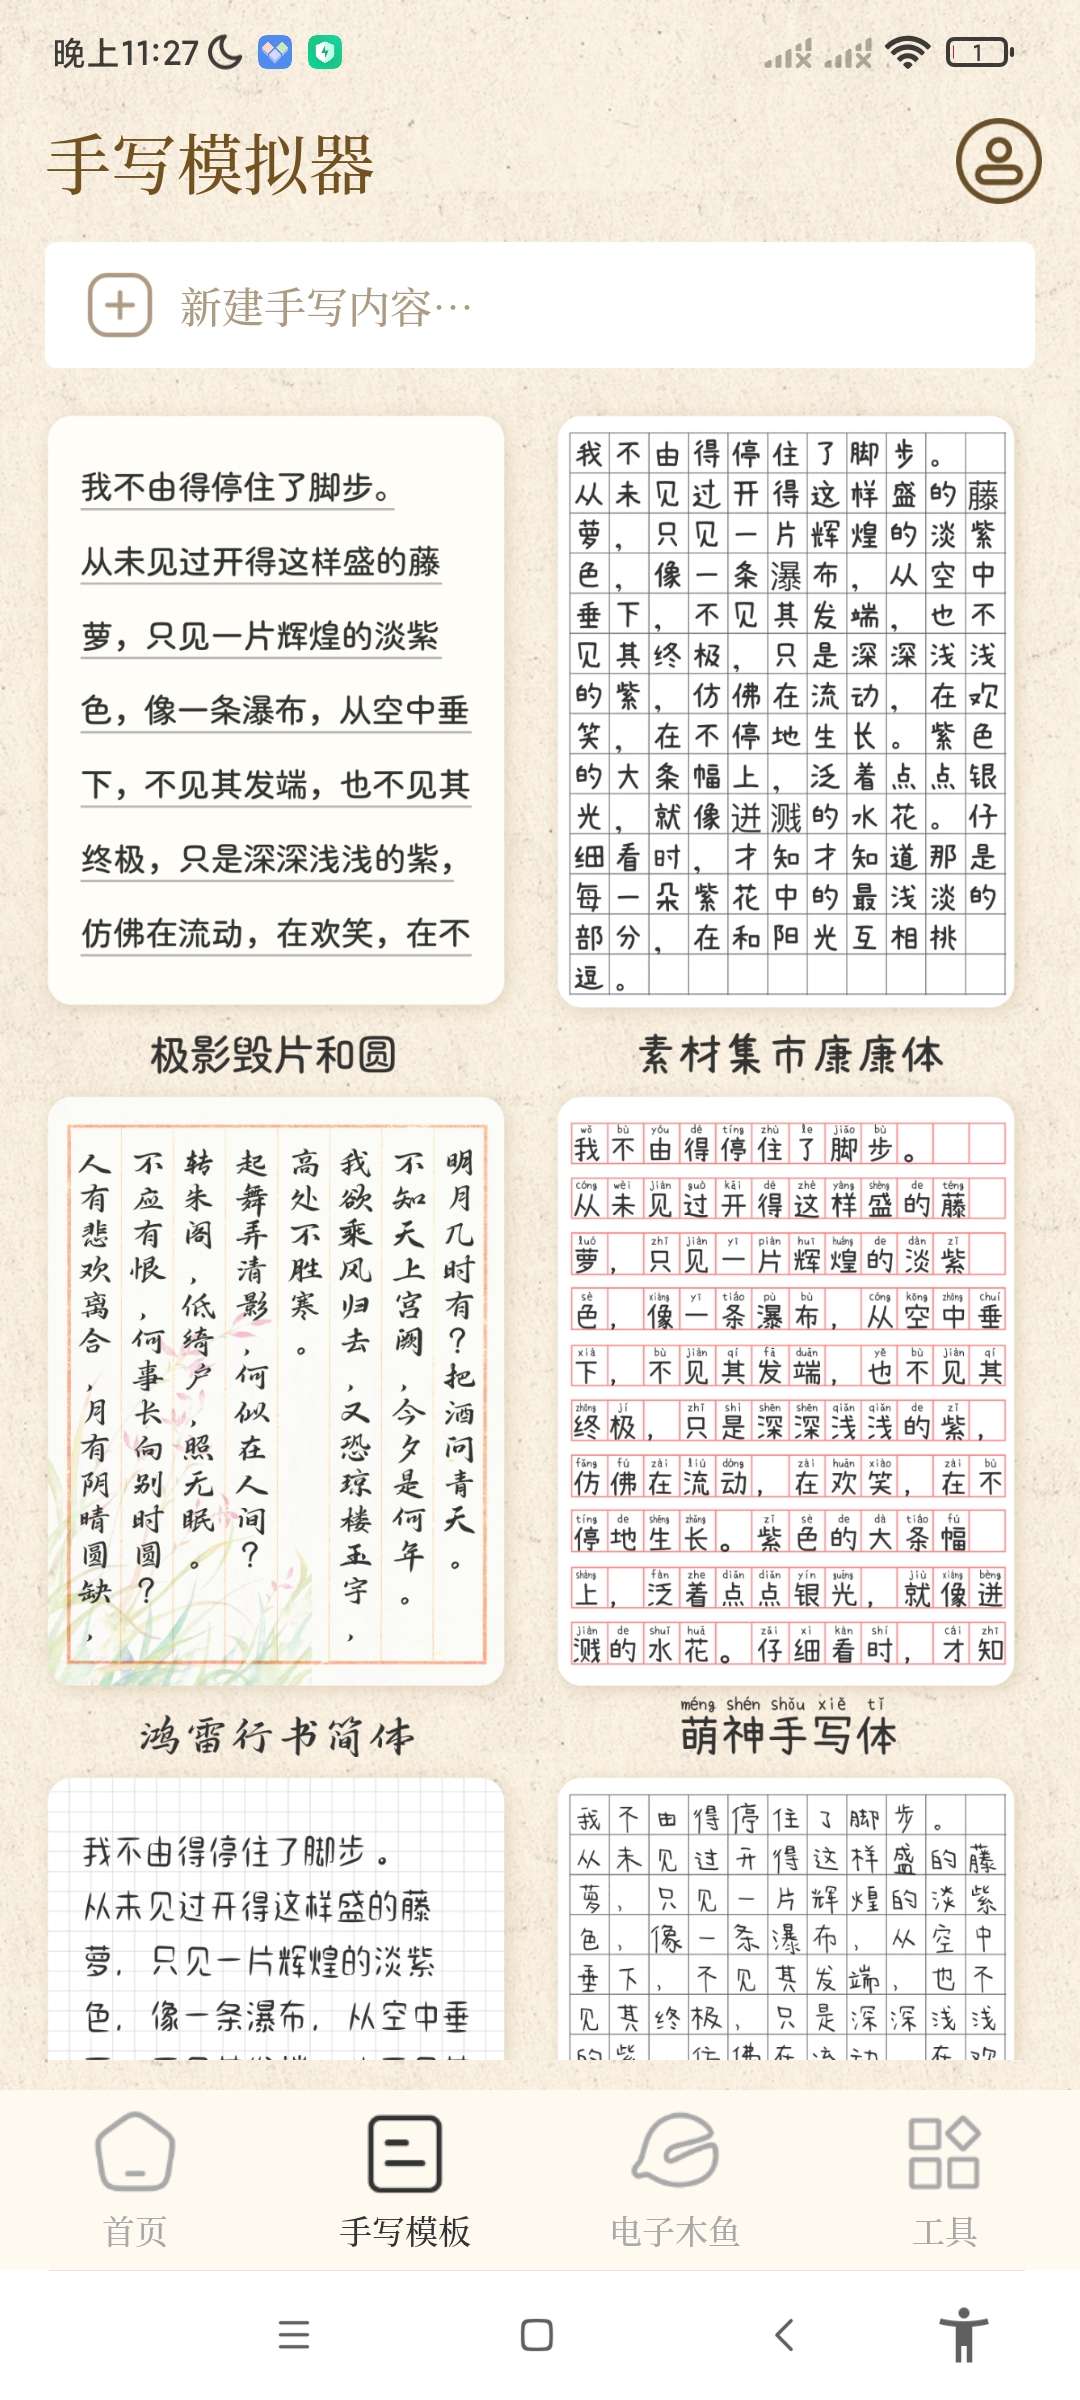 晚上11:27
1
手写模拟器
新建手写内容…
我不由得停住了脚步。
从未见过开得这样盛的藤
萝，只见一片辉煌的淡紫
色，像一条瀑布，从空中垂
下，不见其发端，也不见其
终极，只是深深浅浅的紫，
仿佛在流动，在欢笑，在不
极影毁片和圆
我不由得停住了脚步。
从未见过开得这样盛的藤
萝，只见一片辉煌的淡紫
色，像一条瀑布，从空中
垂下，不见其发端，也不
见其终极，只是深深浅浅
的紫，仿佛在流动，在欢
笑，在不停地生长。紫色
的大条幅上，泛着点点银
光，就像迸溅的水花。仔
细看时，才知才知道那是
每一朵紫花中的最浅淡的
部分，在和阳光互相挑
逗。
素材集市康康体
明月几时有？把酒问青天。
不知天上宫阙，今夕是何年。
我欲乘风归去，又恐琼楼玉宇，
高处不胜寒。
起舞弄清影，何似在人间？
转朱阁，低绮户，照无眠。
不应有恨，何事长向别时圆？
人有悲欢离合，月有阴晴圆缺，
鸿雷行书简体
wǒ bù yóu dé tíng zhù le jiǎo bù
我不由得停住了脚步。
cóng wèi jiàn guò kāi dé zhè yàng shèng de téng
从未见过开得这样盛的藤
luó zhǐ jiàn yī piàn huī huáng de dàn zǐ
萝，只见一片辉煌的淡紫
sè xiàng yī tiáo pù bù cóng kōng zhōng chuí
色，像一条瀑布，从空中垂
xià bù jiàn qí fā duān yě bù jiàn qí
下，不见其发端，也不见其
zhōng jí zhǐ shì shēn shēn qiǎn qiǎn de zǐ
终极，只是深深浅浅的紫，
fǎng fú zài liú dòng zài huān xiào zài bù
仿佛在流动，在欢笑，在不
tíng de shēng zhǎng zǐ sè de dà tiáo fú
停地生长。紫色的大条幅
shàng fàn zhe diǎn diǎn yín guāng jiù xiàng bèng
上，泛着点点银光，就像迸
jiàn de shuǐ huā zǎi xì kàn shí cái zhī
溅的水花。仔细看时，才知
méng shén shǒu xiě tǐ
萌神手写体
我不由得停住了脚步。
从未见过开得这样盛的藤
萝，只见一片辉煌的淡紫
色，像一条瀑布，从空中垂
我不由得停住了脚步。
从未见过开得这样盛的藤
萝，只见一片辉煌的淡紫
色，像一条瀑布，从空中
垂下，不见其发端，也不
见其终极，只是深深浅浅
的紫，仿佛在流动，在欢
首页
手写模板
电子木鱼
工具